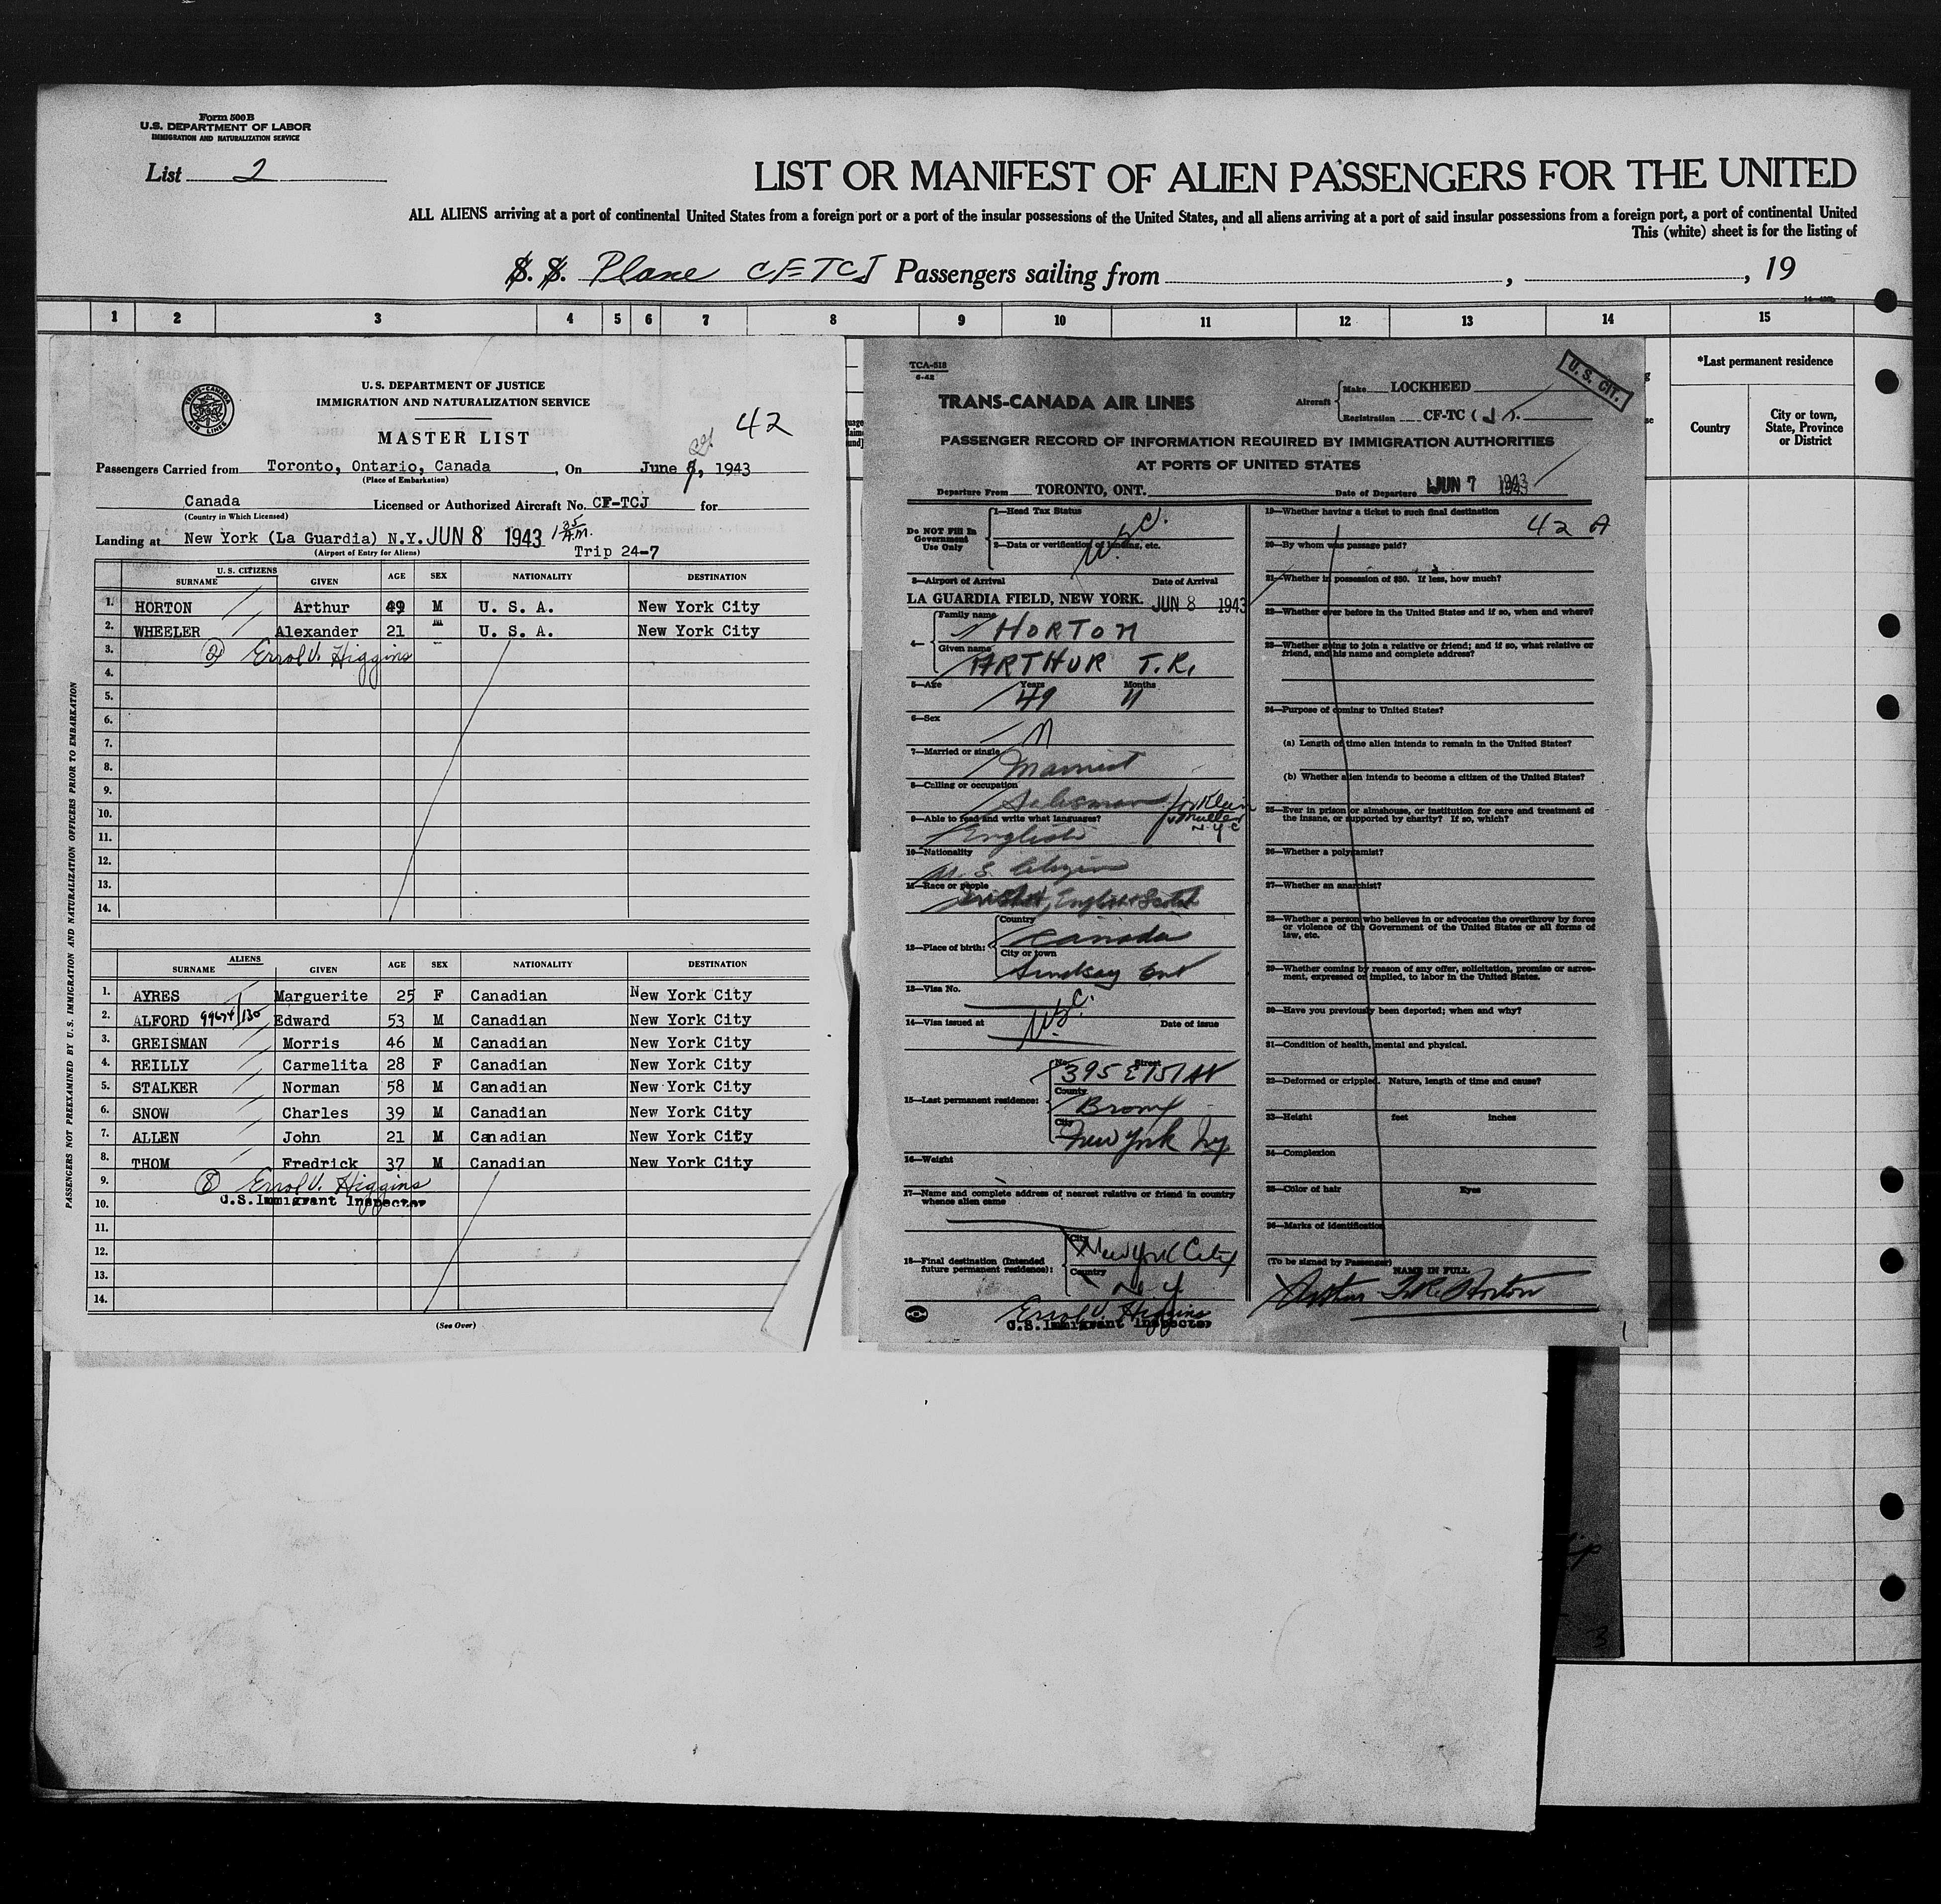 Form 500B
U.S. DEPARTMENT OF LABOR
IMMIGRATION AND NATURALIZATION SERVICE
List 2
LIST OR MANIFEST OF ALIEN PASSENGERS FOR THE UNITED
ALL ALIENS arriving at a port of continental United States from a foreign port or a port of the insular possessions of the United States, and all aliens arriving at a port of said insular possessions from a foreign port, a port of continental United
This (white) sheet is for the listing of
S. S. Plane CF-TCJ Passengers sailing from , , 19
1 2 3 4 5 6 7 8 9 10 11 12 13 14 15
*Last permanent residence
Country
City or town, State, Province or District
TRANS-CANADA AIR LINES
U.S. DEPARTMENT OF JUSTICE
IMMIGRATION AND NATURALIZATION SERVICE
MASTER LIST
42
Passengers Carried from Toronto, Ontario, Canada, On June 7, 1943
(Place of Embarkation)
Canada Licensed or Authorized Aircraft No. CF-TCJ for
(Country in Which Licensed)
Landing at New York (La Guardia) N.Y. JUN 8 1943 1 35/A.M.
(Airport of Entry for Aliens) Trip 24-7
U.S. CITIZENS
SURNAME GIVEN AGE SEX NATIONALITY DESTINATION
1. HORTON Arthur 49 M U. S. A. New York City
2. WHEELER Alexander 21 M U. S. A. New York City
3. (2) Errol V. Higgins
4.
5.
6.
7.
8.
9.
10.
11.
12.
13.
14.
ALIENS
SURNAME GIVEN AGE SEX NATIONALITY DESTINATION
1. AYRES Marguerite 25 F Canadian New York City
2. ALFORD 99674/130 Edward 53 M Canadian New York City
3. GREISMAN Morris 46 M Canadian New York City
4. REILLY Carmelita 28 F Canadian New York City
5. STALKER Norman 58 M Canadian New York City
6. SNOW Charles 39 M Canadian New York City
7. ALLEN John 21 M Canadian New York City
8. THOM Fredrick 37 M Canadian New York City
9. (8) Errol V. Higgins
10. U.S. Immigrant Inspector
11.
12.
13.
14.
(See Over)
PASSENGERS NOT PREEXAMINED BY U.S. IMMIGRATION AND NATURALIZATION OFFICERS PRIOR TO EMBARKATION
TCA-518
6-42
TRANS-CANADA AIR LINES
Aircraft Make LOCKHEED
Registration CF-TC (J)
U.S. CIT.
PASSENGER RECORD OF INFORMATION REQUIRED BY IMMIGRATION AUTHORITIES
AT PORTS OF UNITED STATES
Departure From TORONTO, ONT. Date of Departure JUN 7 1943
Do NOT Fill In Government Use Only
1—Head Tax Status
2—Data or verification of landing, etc.
3—Airport of Arrival Date of Arrival
LA GUARDIA FIELD, NEW YORK. JUN 8 1943
4— Family name HORTON
Given name ARTHUR T.R.
5—Age Years 49 Months 11
6—Sex M
7—Married or single Married
8—Calling or occupation Salesman for Klein Muller N.Y.C
9—Able to read and write what languages?
English
10—Nationality
U.S. Citizen
11—Race or people
English Scotch
12—Place of birth: Country
Canada
City or town
Lindsay Ont
13—Visa No.
14—Visa issued at Date of issue
15—Last permanent residence: No. Street 395 E 151 St
County Bronx
City New York Ny
16—Weight
17—Name and complete address of nearest relative or friend in country whence alien came
18—Final destination (Intended future permanent residence): City New York City
Country N.Y.
Errol V. Higgins
U.S. Immigrant Inspector
19—Whether having a ticket to such final destination
42 A
20—By whom was passage paid?
21—Whether in possession of $50. If less, how much?
22—Whether ever before in the United States and if so, when and where?
23—Whether going to join a relative or friend; and if so, what relative or friend, and his name and complete address?
24—Purpose of coming to United States?
(a) Length of time alien intends to remain in the United States?
(b) Whether alien intends to become a citizen of the United States?
25—Ever in prison or almshouse, or institution for care and treatment of the insane, or supported by charity? If so, which?
26—Whether a polygamist?
27—Whether an anarchist?
28—Whether a person who believes in or advocates the overthrow by force or violence of the Government of the United States or all forms of law, etc.
29—Whether coming by reason of any offer, solicitation, promise or agreement, expressed or implied, to labor in the United States.
30—Have you previously been deported; when and why?
31—Condition of health, mental and physical.
32—Deformed or crippled. Nature, length of time and cause?
33—Height feet inches
34—Complexion
35—Color of hair Eyes
36—Marks of identification
(To be signed by Passenger)
NAME IN FULL
Arthur T.R. Horton
1
3